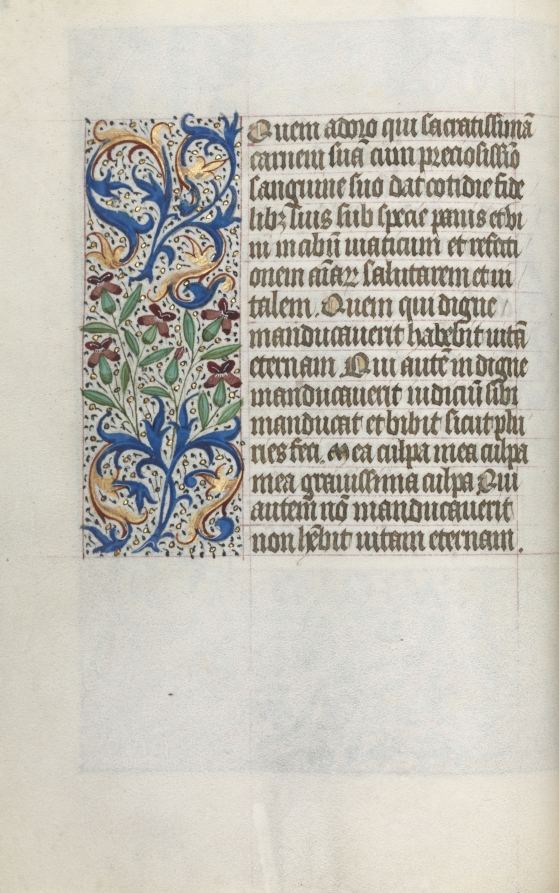 Quem adoro qui sacratissimā
carnem suā cum preciosissīo
sanguine suo dat cotidie fide
libꝫ suis sub specie panis et vi
ni in cibū viaticum et refecti
onem aīaꝝ salutarem et vi
talem. Quem qui digne
manducaverit habebit vitā
eternam Qui autē indigne
manducaverit iudiciū sibi
manducat et bibit sicut plu
ries feci. Mea culpa mea culpa
mea gravissima culpa Qui
autem nō manducaverit
non hēbit vitam eternam.